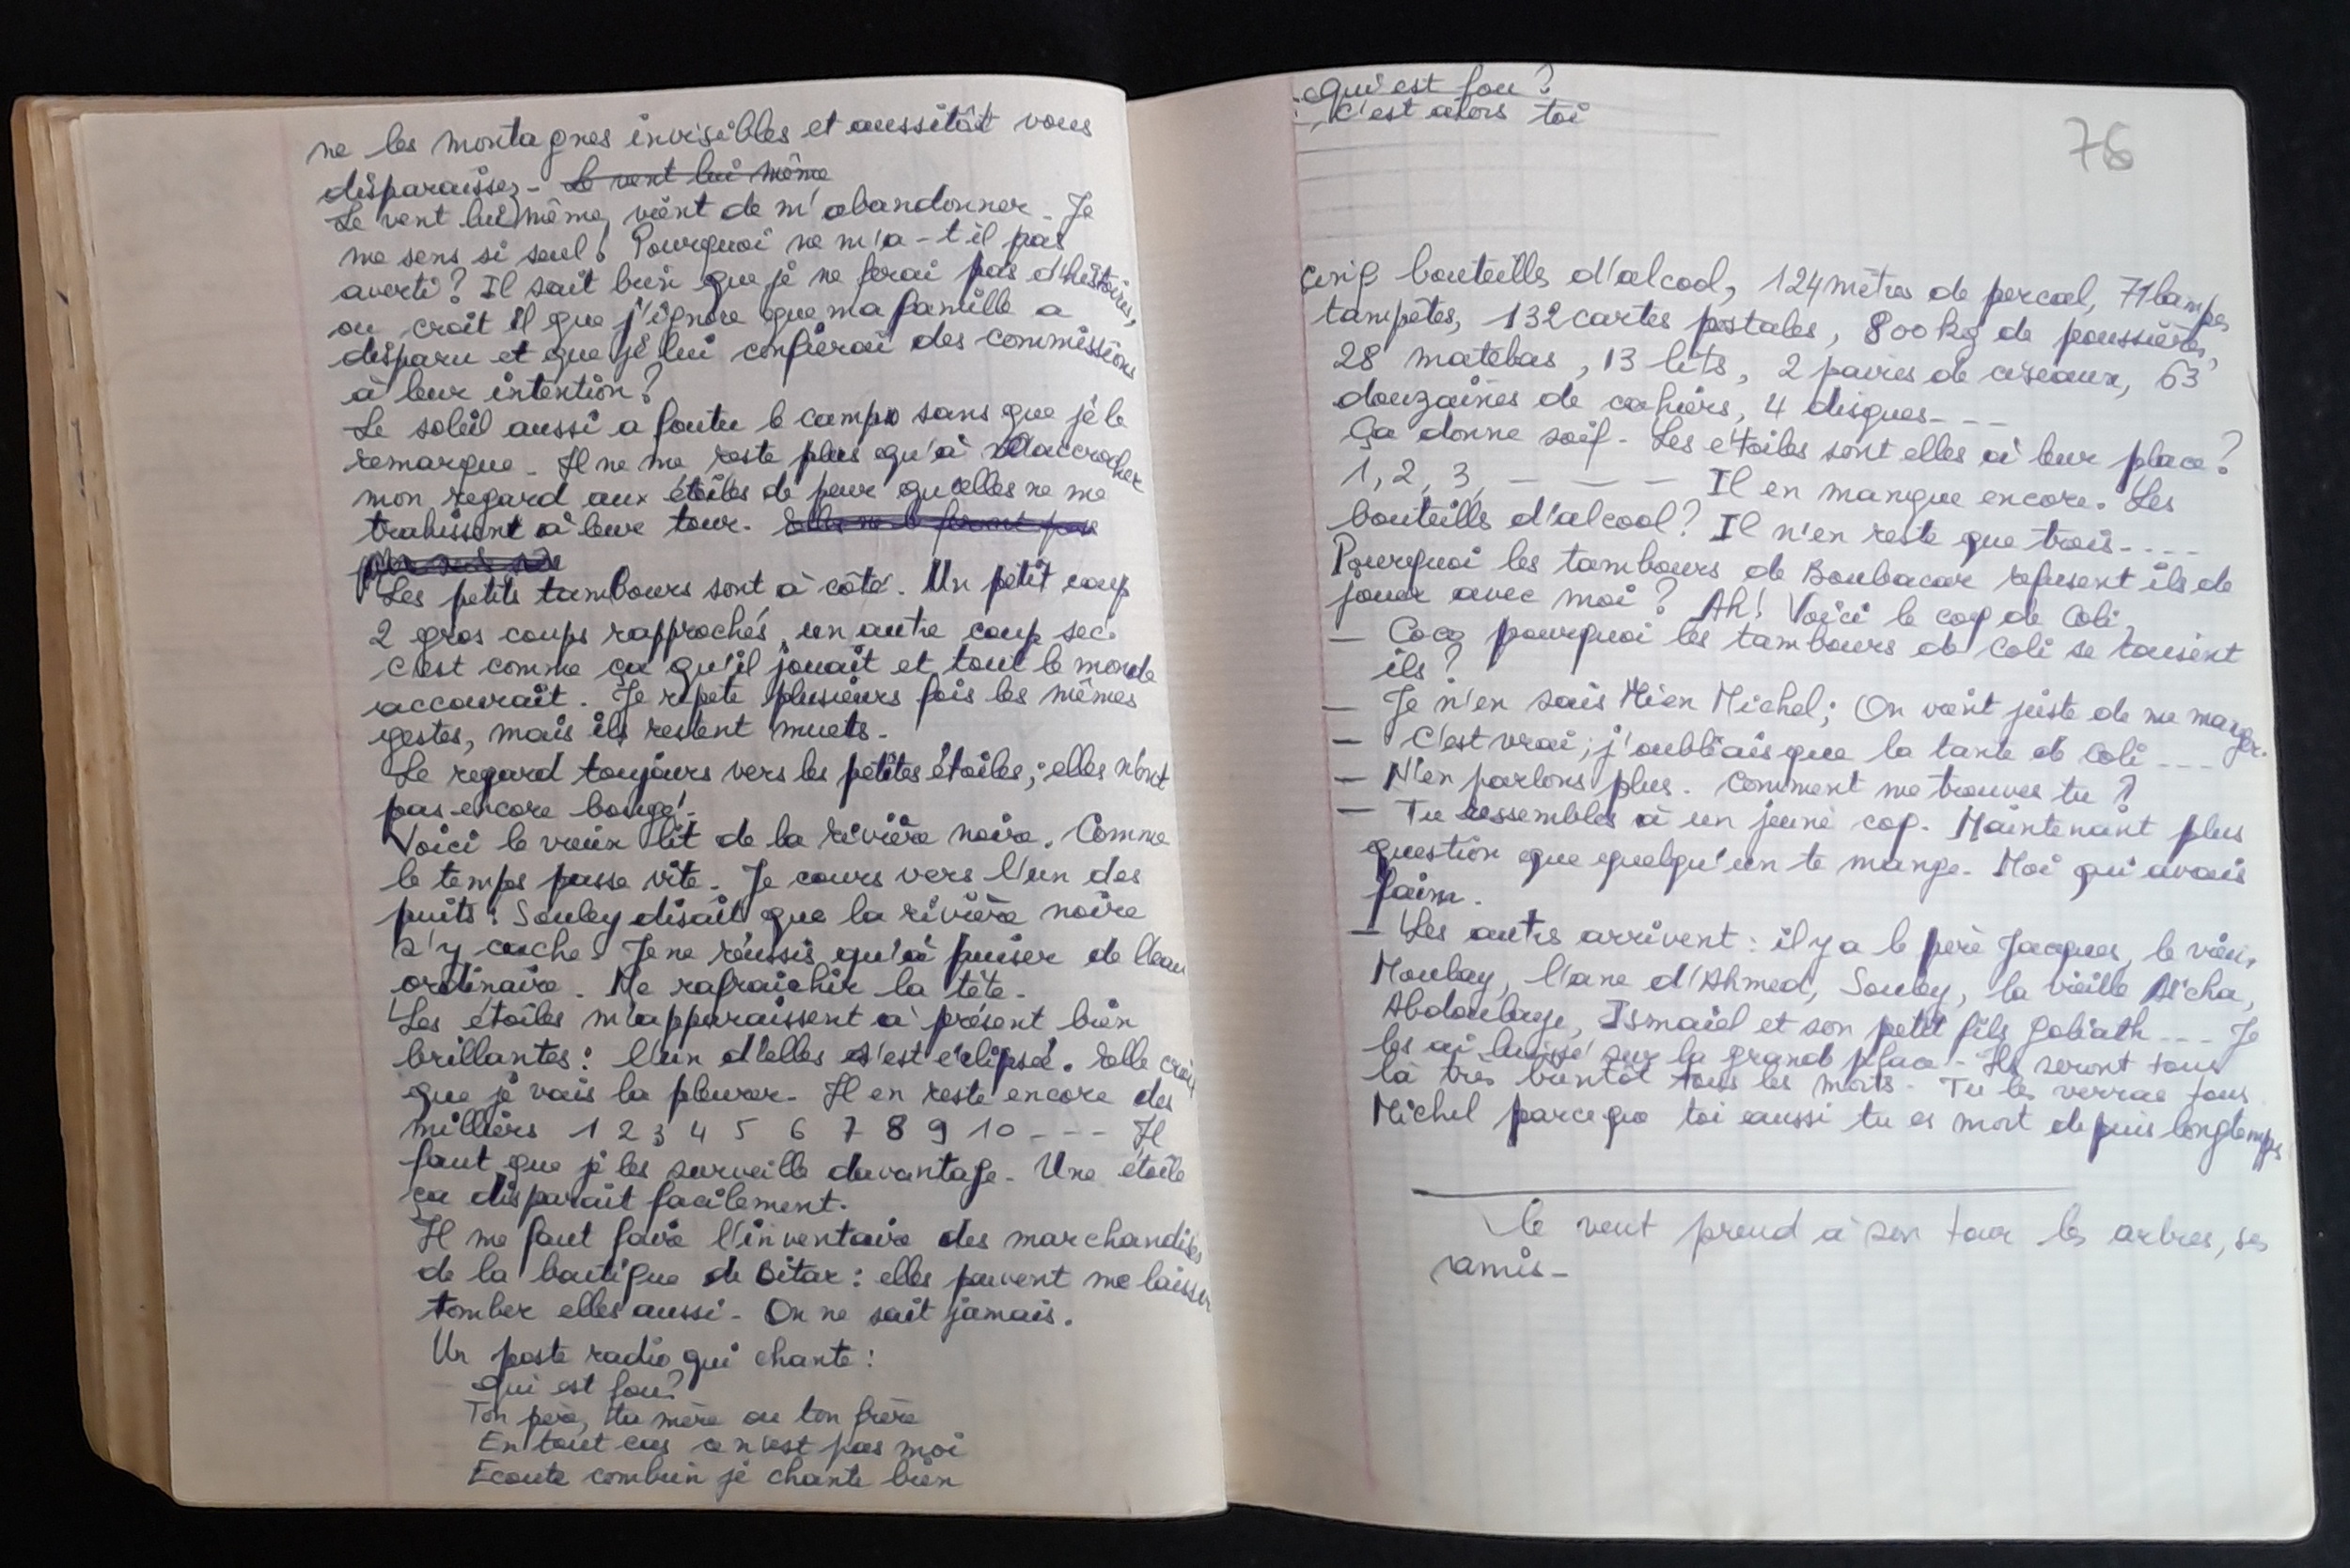 ne les montagnes invisibles et aussitôt vous
disparaissez - Le vent lui même
Le vent lui même, vient de m'abandonner - Je
me sens si seul. Pourquoi ne m'a-t-il pas
averti? Il sait bien que je ne ferai pas d'histoires,
ou croit il que j'ignore que ma famille a
disparu et que je lui confierai des commissions
à leur intention?
Le soleil aussi a foutu le camp sans que je le
remarque - Il ne me reste plus qu'à accrocher
mon regard aux étoiles de peur qu'elles ne me
trahissent à leur tour.
Les petits tambours sont à côté. Un petit coup
2 gros coups rapprochés, un autre coup sec.
C'est comme ça qu'il jouait et tout le monde
accourait. Je répète plusieurs fois les mêmes
gestes, mais ils restent muets -
Le regard toujours vers les petites étoiles; elles n'ont
pas encore bougé.
Voici le vieux lit de la rivière noire. Comme
le temps passe vite - Je cours vers l'un des
puits: Souley disait que la rivière noire
s'y cache. Je ne réussis qu'à puiser de l'eau
ordinaire. Me rafraichir la tête -
Les étoiles m'apparaissent à présent bien
brillantes: l'un d'elles s'est éclipsée. Elle croit
que je vais la pleurer - Il en reste encore des
milliers 1 2 3 4 5 6 7 8 9 10 - - - Il
faut que je les surveille davantage - Une étoile
ça disparait facilement.
Il me faut faire l'inventaire des marchandises
de la boutique de Bitar: elles peuvent me laisser
tomber elles aussi - On ne sait jamais.
Un poste radio qui chante:
Qui est fou?
Ton père, ta mère ou ton frère
En tout cas ce n'est pas moi
Ecoute combien je chante bien
Qui est fou?
C'est alors toi
76
Cinq bouteilles d'alcool, 124 mètres de percal, 71 lampes
tampêtes, 132 cartes postales, 800 kg de poussières,
28 matelas, 13 lits, 2 paires de ciseaux, 63
douzaines de cahiers, 4 disques - - -
Ça donne soif - Les étoiles sont elles à leur place?
1, 2, 3, - - - Il en manque encore. Les
bouteills d'alcool? Il n'en reste que trois - - - -
Pourquoi les tambours de Boubacar refusent ils de
jouer avec moi? Ah! Voici le coq de Coli,
- Coco pourquoi les tambours de Coli se taisent
ils?
- Je n'en sais rien Michel; On vient juste de me manger.
- C'est vrai; j'oubliais que la tante de Coli - - -
- N'en parlons plus. Comment me trouves tu?
- Tu ressembles à un jeune coq. Maintenant plus
question que quelqu'un te mange. Moi qui avais
faim.
- Les autres arrivent: il y a le père Jacques, le vieux
Moulay, l'ane d'Ahmed, Souley, la vieille Aïcha,
Abdoulaye, Ismaïel et son petit fils Goliath - - - Je
les ai laissé sur la grand place - Ils seront tous
là très bientôt tous les morts - Tu les verras tous
Michel parceque toi aussi tu es mort depuis longtemps
le vent prend à son tour les arbres, ses
amis -